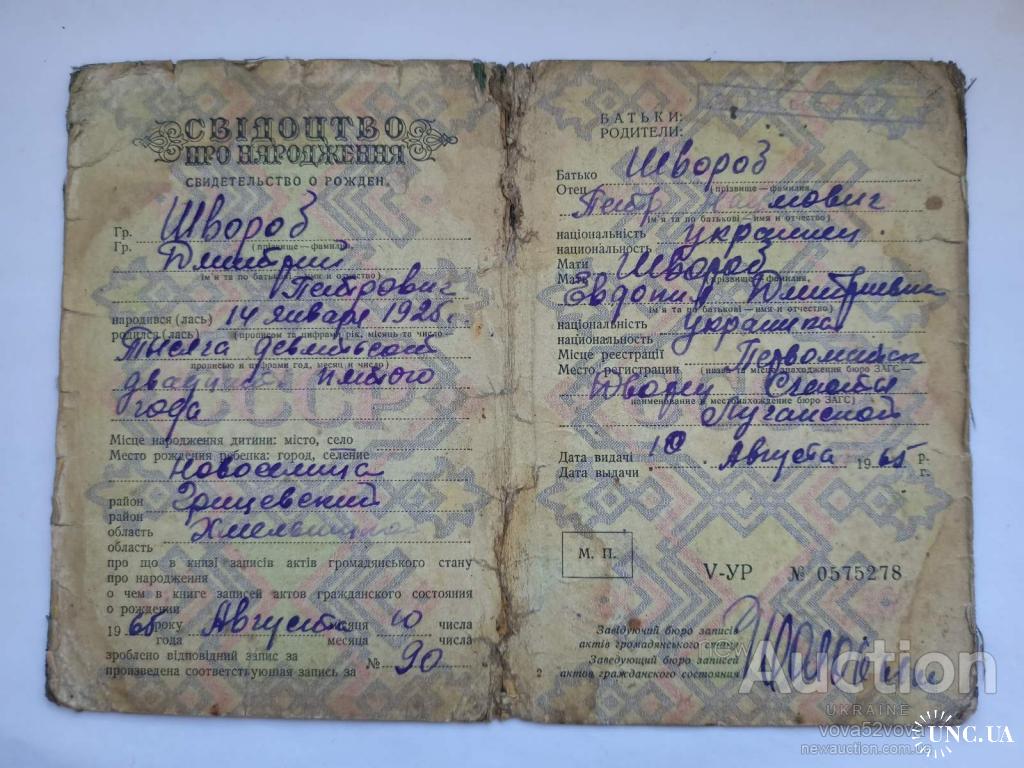 СВІДОЦТВО
ПРО НАРОДЖЕННЯ
СВИДЕТЕЛЬСТВО О РОЖДЕН.
Гр. Швороб
Гр. (прізвище — фамилия)
Дмитрий
ім'я та по батькові — имя и отчество)
Петрович
народився (лась) 14 января 1925 г.
родился (лась) (прописом та цифрами рік, місяць та число
Тысяча девятьсот
прописью и цифрами год, месяц и число)
двадцать пятого
года
СССР
Місце народження дитини: місто, село
Место рождения ребенка: город, селение
Новоселица
район Грицевский
район
область Хмельницкая
область
про що в книзі записів актів громадянського стану
про народження
о чем в книге записей актов гражданского состояния
о рождении
1965 року Август місяця 10 числа
года месяца числа
зроблено відповідний запис за
произведена соответствующая запись за № 90
БАТЬКИ:
РОДИТЕЛИ:
Батько Швороб
Отец (прізвище — фамилия)
Петр Наумович
(ім'я та по батькові — имя и отчество)
національність украинец
национальность
Мати Швороб
Мать (прізвище — фамилия)
Евдокия Дмитриевна
(ім'я та по батькові — имя и отчество)
національність украинка
национальность
Місце реєстрації Первомайск
Место регистрации (назва та місцезнаходження бюро ЗАГС —
Дворец Счастья
наименование и местонахождение бюро ЗАГС)
Луганской
Дата видачі 10 Августа 1965 р.
Дата выдачи г.
М. П.
V-УР № 0575278
Завідуючий бюро записів
актів громадянського стану
Заведующий бюро записей
актов гражданского состояния
2
Auction
UKRAINE
vova52vova
newauction.com.ua
UNC.UA